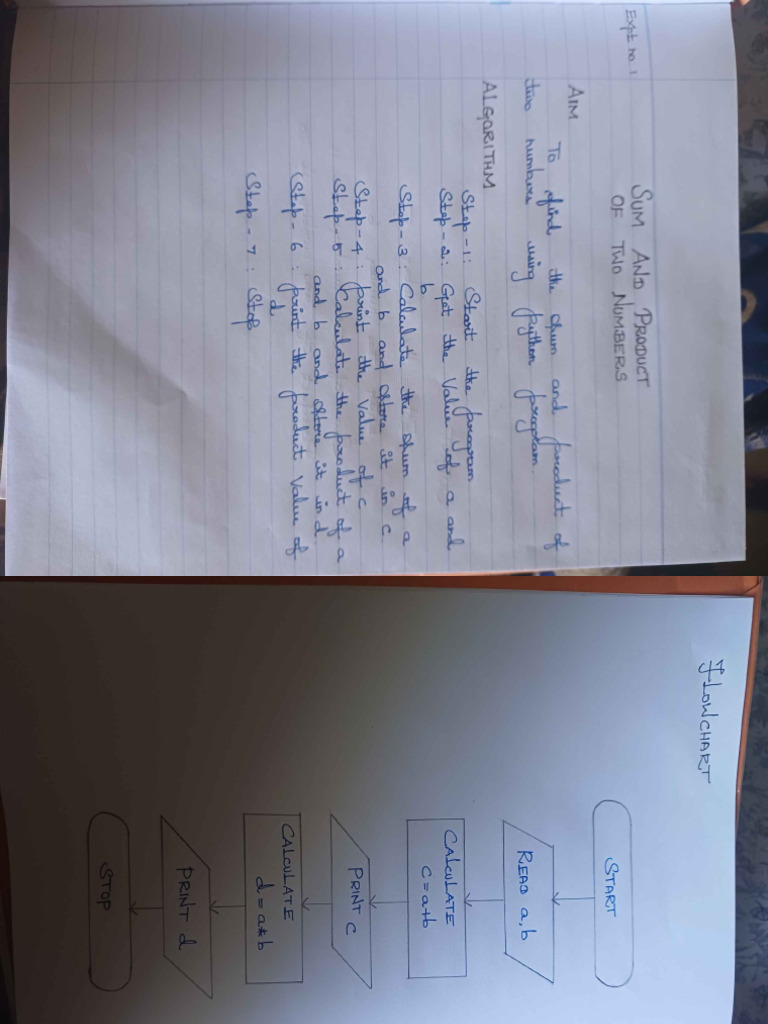 Expt no. 1
SUM AND PRODUCT
OF TWO NUMBERS
AIM
To find the sum and product of
two numbers using python program.
ALGORITHM
Step-1: Start the program
Step-2: Get the value of a and
b
Step-3: Calculate the sum of a
and b and store it in c.
Step-4: print the value of c
Step-5: Calculate the product of a
and b and store it in d
Step-6: print the product value of
d
Step-7: Stop
FLOWCHART
START
READ a,b
CALCULATE
c=a+b
PRINT c
CALCULATE
d=a*b
PRINT d
STOP